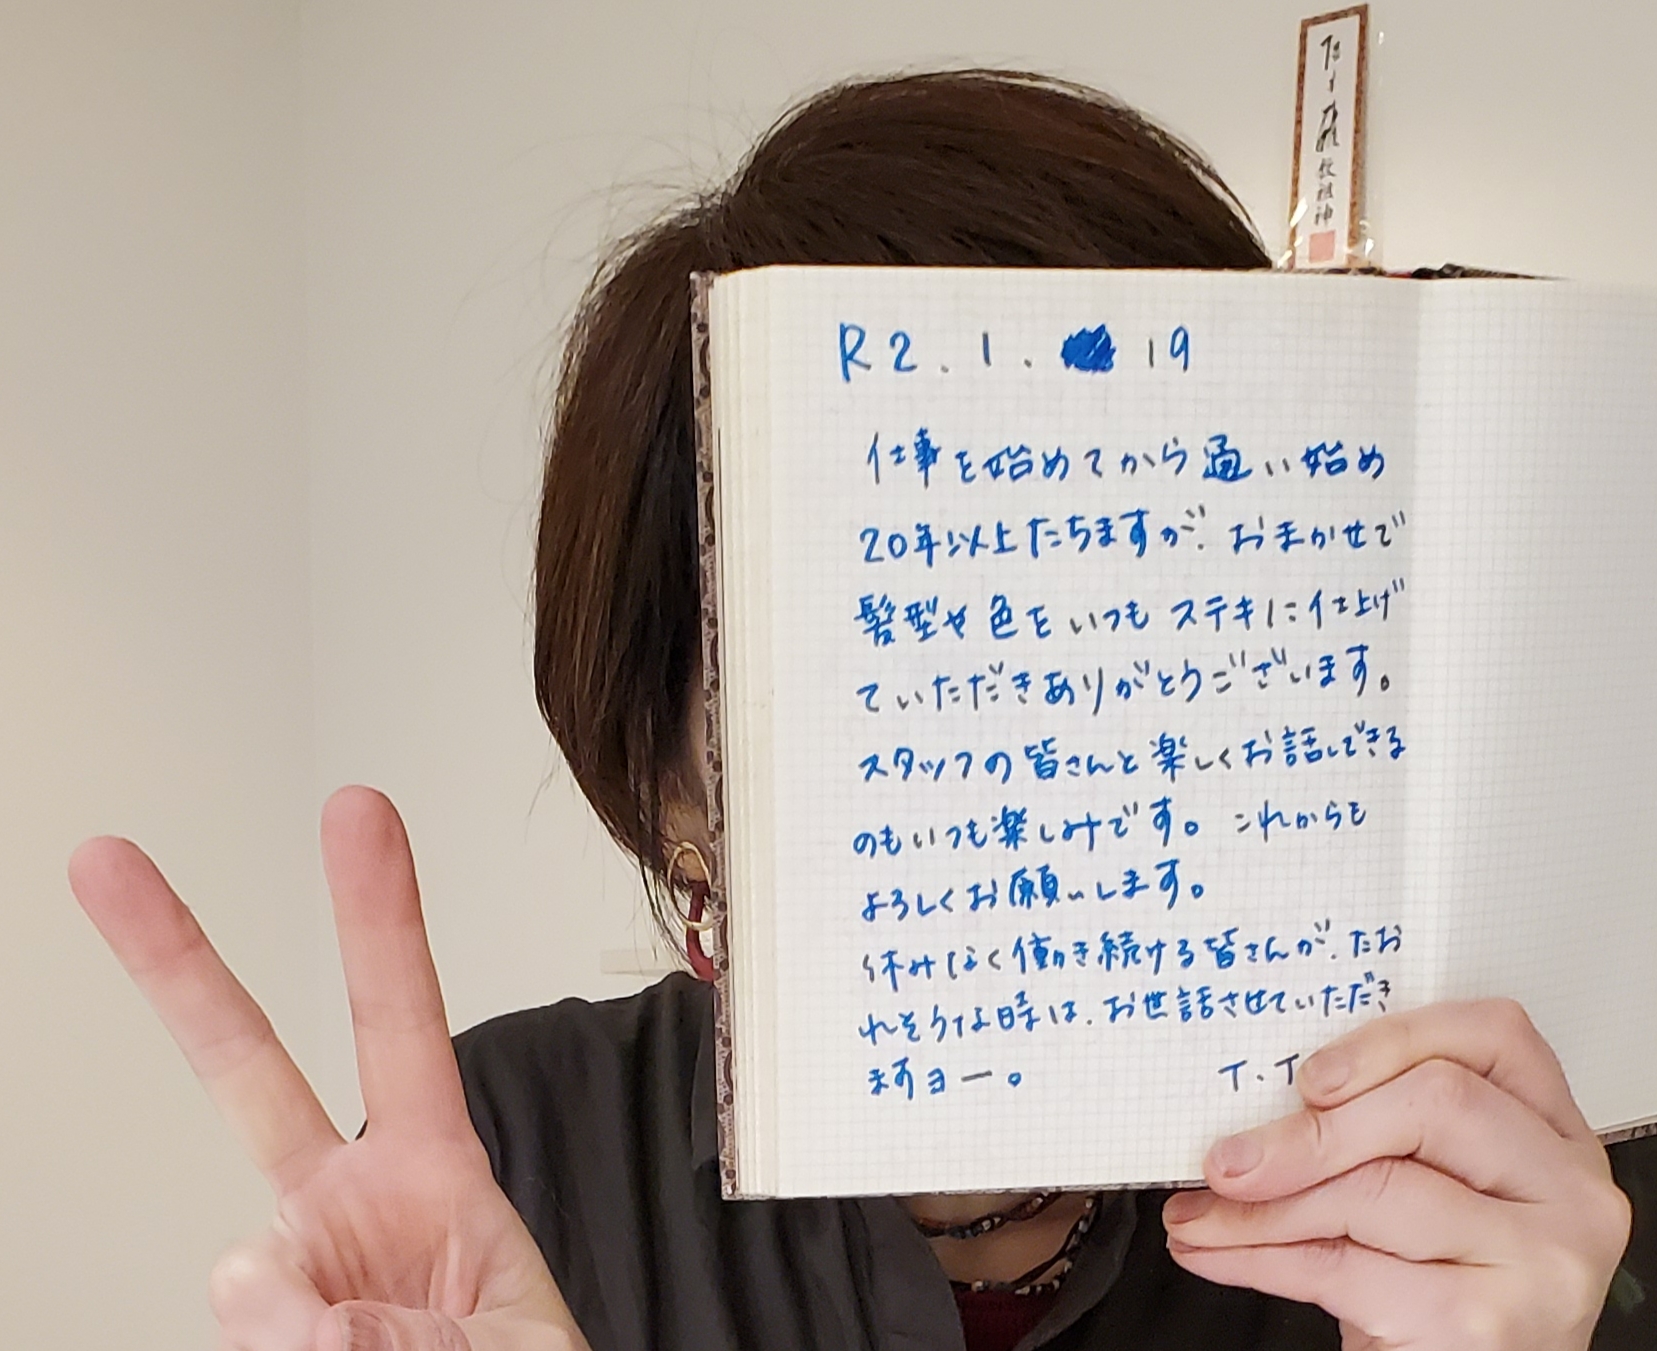 教祖神
R2.1. 19
仕事を始めてから通い始め
20年以上たちますが、おまかせで
髪型や色をいつもステキに仕上げ
ていただきありがとうございます。
スタッフの皆さんと楽しくお話しできる
のもいつも楽しみです。これからも
よろしくお願いします。
休みなく働き続ける皆さんが、たお
れそうな時は、お世話させていただき
ますョー。 T.T